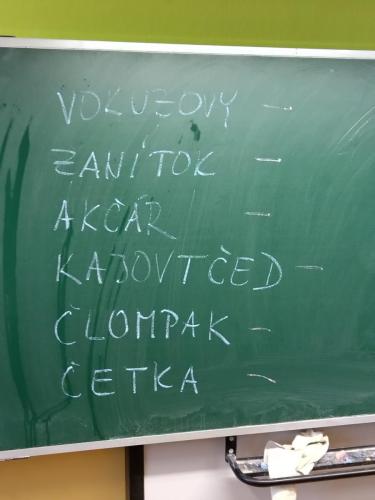 VOKUZOVY –
ZANÍTOK –
AKČÁR –
KAJOVTČED –
ČLOMPAK –
ČETKA –